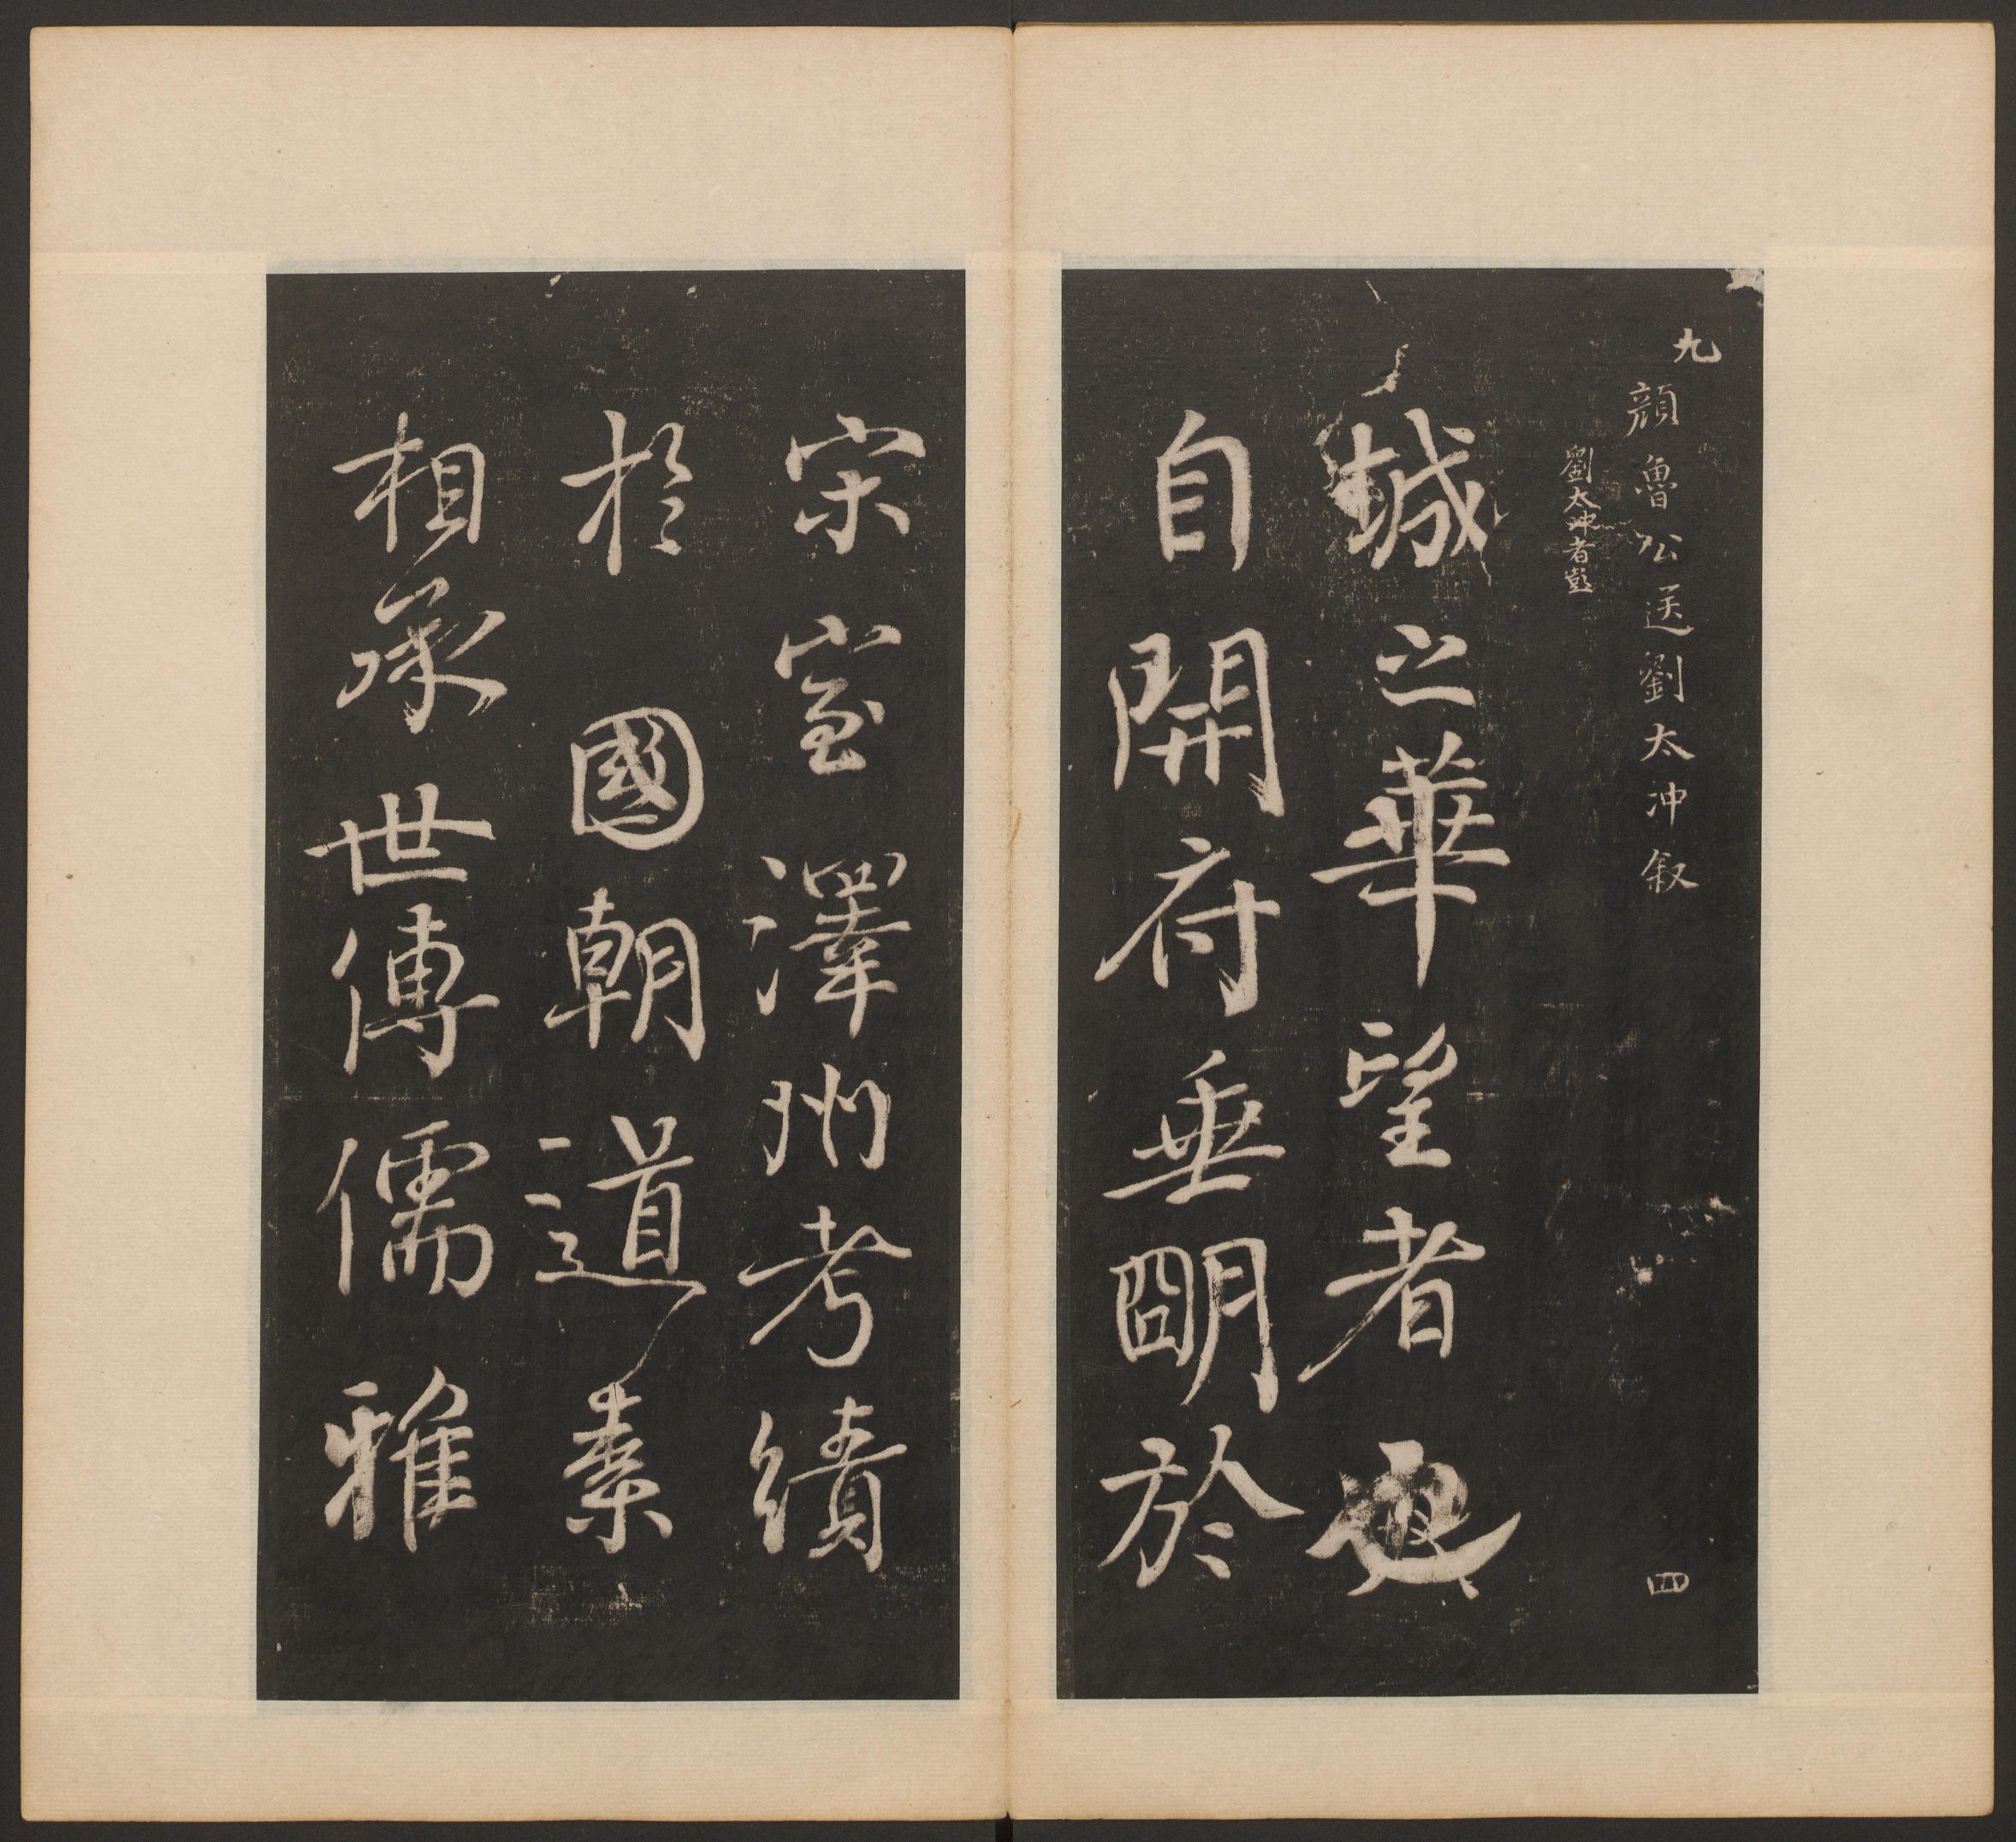 九
顔魯公送劉太冲叙
劉太冲者彭
四
城之華望者也
自開府垂明於
宋室澤州考績
於國朝道素
相承世傳儒雅